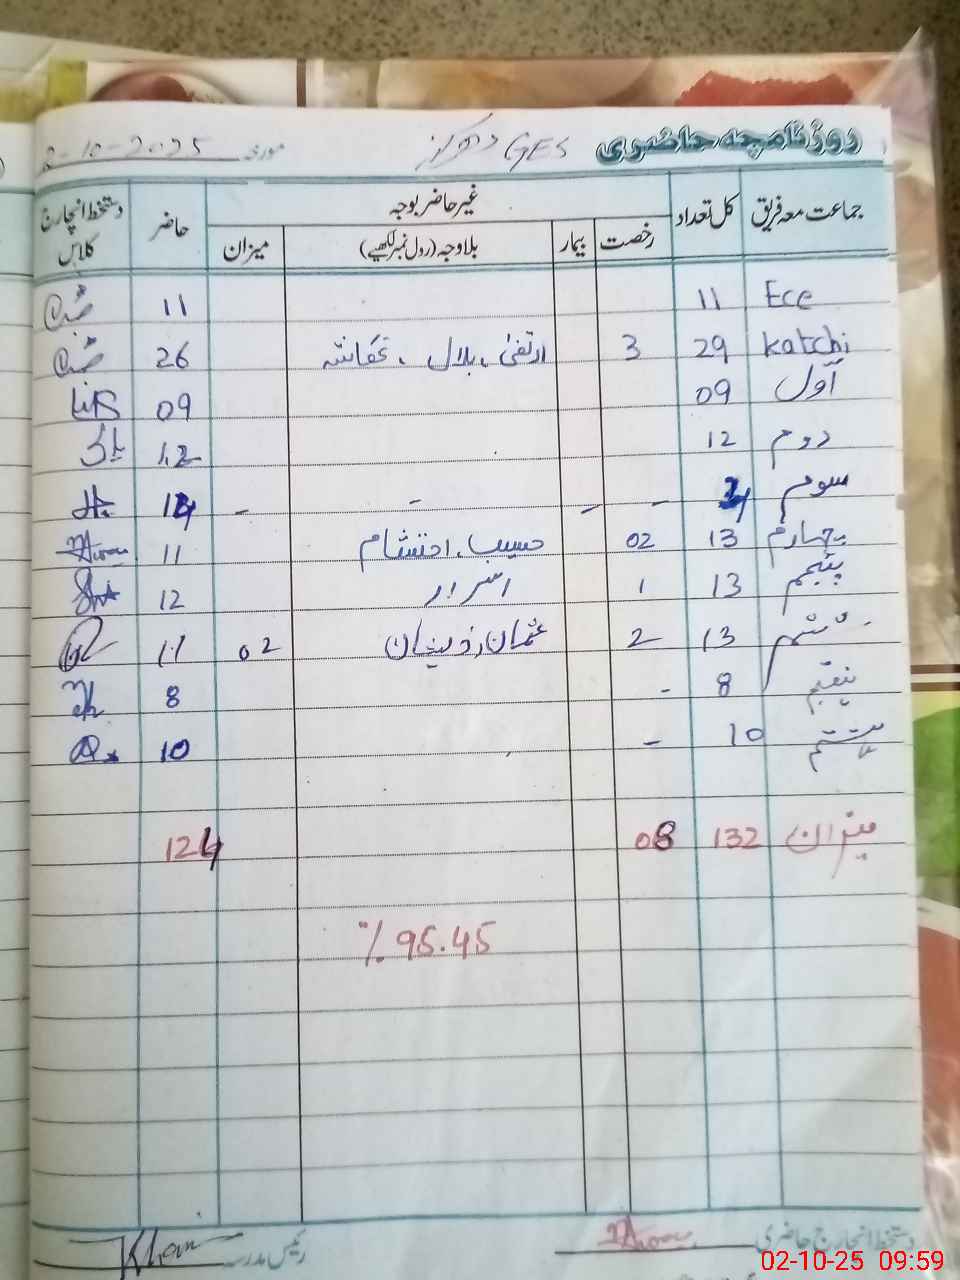 روزنامچہ حاضری GES دھرکنہ مورخہ 2-10-2025
جماعت معہ فریق کل تعداد غیر حاضر بوجہ حاضر دستخط انچارج کلاس
رخصت بیمار بلاوجہ (رول نمبر لکھیے) میزان
Ece 11 11
Katchi 29 3 ارتضیٰ، بلال، 26
اول 09 09
دوم 12 12
سوم - - - - 14
چہارم 13 02 حسیب، احتشام 11
پنجم 13 1 اسرار 12
ششم 13 2 عثمان، ذیشان 02 11
ہفتم 8 - 8
ہشتم 10 - 10
میزان 132 08 124
% 95.45
دستخط انچارج حاضری رئیس مدرسہ Khan
02-10-25 09:59